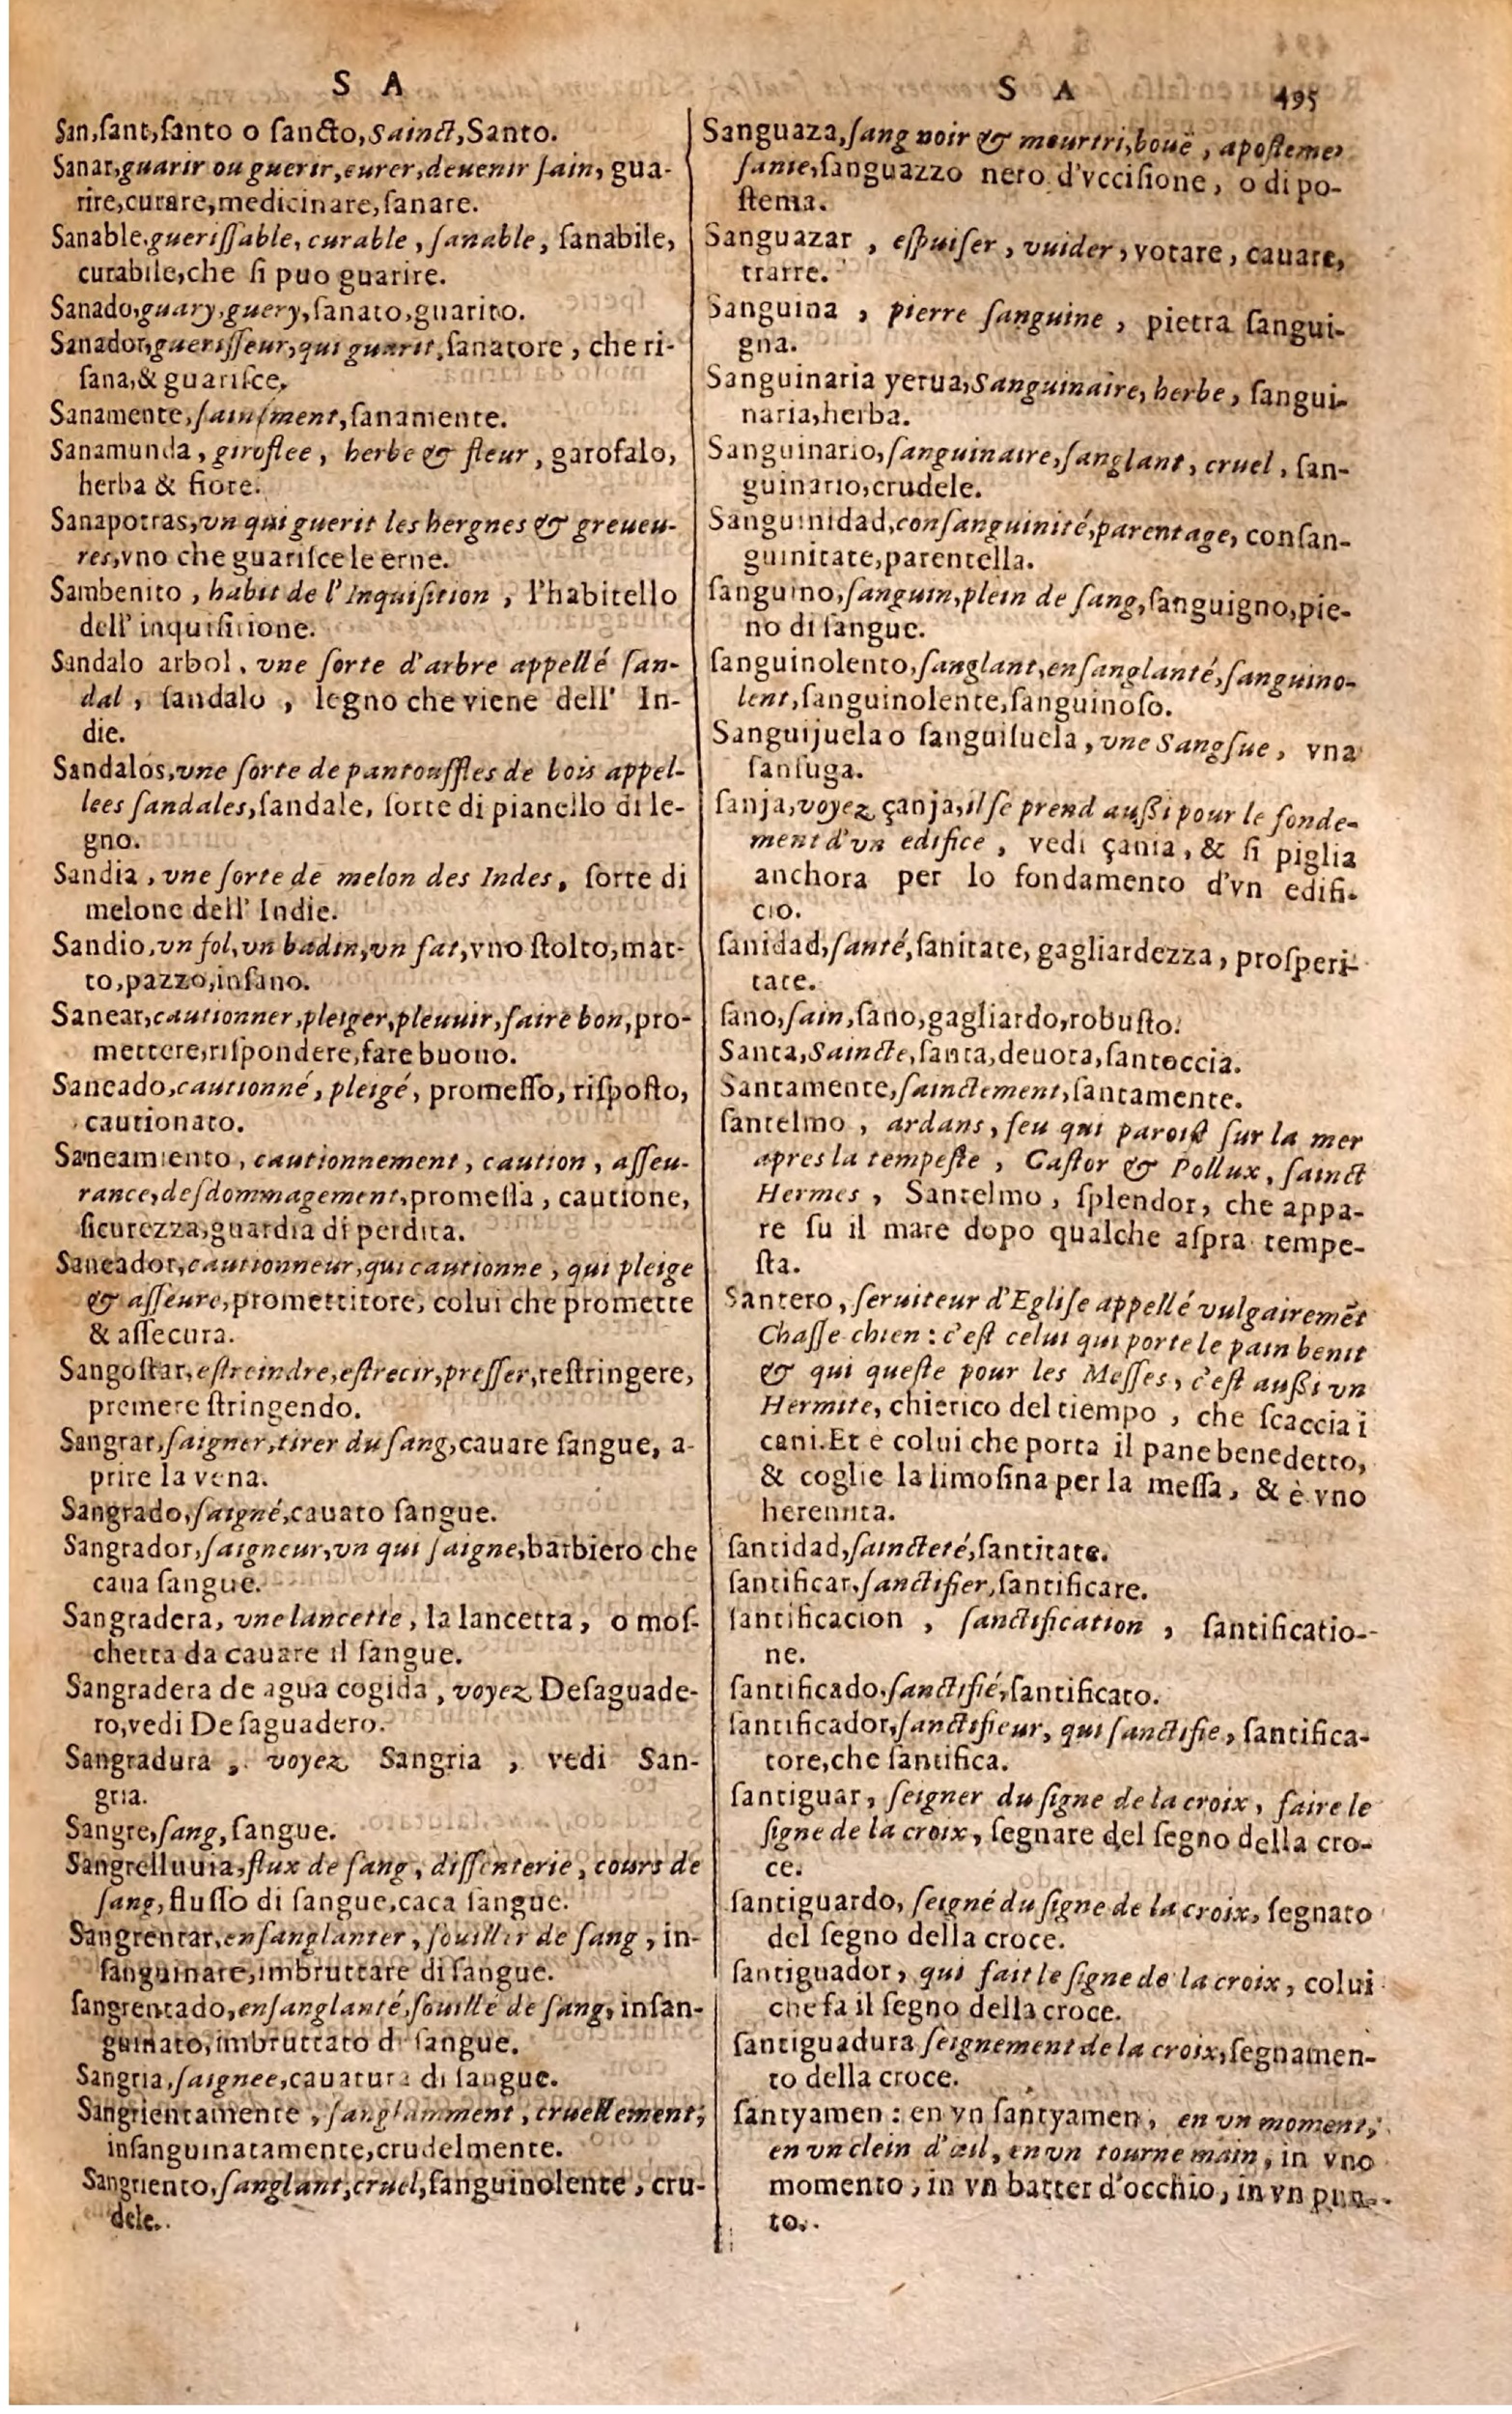 S A
San, ſant, ſanto o ſancto, Sainct, Santo.
Sanar, guarir ou guerir, curer, deuenir ſain, gua-
rire, curare, medicinare, ſanare.
Sanable. gueriſſable, curable, ſanable, ſanabile,
curabile, che ſi puo guarire.
Sanado, guary, guery, ſanato, guarito.
Sanador, gueriſſeur, qui guarit, ſanatore, che ri-
ſana, & guariſce.
Sanamente, ſainement, ſanamente.
Sanamunda, giroflee, herbe & fleur, garofalo,
herba & fiore.
Sanapotras, vn qui guerit les hergnes & greueu-
res, vno che guariſce le erne.
Sambenito, habit de l'Inquiſition, l'habitello
dell' inquiſitione.
Sandalo arbol, vne ſorte d'arbre appellé ſan-
dal, ſandalo, legno che viene dell' In-
die.
Sandalos, vne ſorte de pantouffles de bois appel-
lees ſandales, ſandale, ſorte di pianello di le-
gno.
Sandia, vne ſorte de melon des Indes, ſorte di
melone dell' Indie.
Sandio, vn fol, vn badin, vn fat, vno ſtolto, mat-
to, pazzo, inſano.
Sanear, cautionner, pleiger, pleuuir, faire bon, pro-
mettere, riſpondere, fare buono.
Saneado, cautionné, pleigé, promeſſo, riſpoſto,
cautionato.
Saneamiento, cautionnement, caution, aſſeu-
rance, deſdommagement, promeſſa, cautione,
ſicurezza, guardia di perdita.
Saneador, cautionneur, qui cautionne, qui pleige
& aſſeure, promettitore, colui che promette
& aſſecura.
Sangoſtar, eſtreindre, eſtrecir, preſſer, reſtringere,
premere ſtringendo.
Sangrar, ſaigner, tirer du ſang, cauare ſangue, a-
prire la vena.
Sangrado, ſaigné, cauato ſangue.
Sangrador, ſaigneur, vn qui ſaigne, barbiero che
caua ſangue.
Sangradera, vne lancette, la lancetta, o moſ-
chetta da cauare il ſangue.
Sangradera de agua cogida, voyez Deſaguade-
ro, vedi Deſaguadero.
Sangradura, voyez Sangria, vedi San-
gria.
Sangre, ſang, ſangue.
Sangrelluuia, flux de ſang, diſſenterie, cours de
ſang, fluſſo di ſangue, caca ſangue.
Sangrentar, enſanglanter, ſouiller de ſang, in-
ſanguinare, imbruttare di ſangue.
ſangrentado, enſanglanté, ſouillé de ſang, inſan-
guinato, imbruttato di ſangue.
Sangria, ſaignee, cauatura di ſangue.
Sangrientamente, ſanglamment, cruellement,
inſanguinatamente, crudelmente.
Sangriento, ſanglant, cruel, ſanguinolente, cru-
dele.
S A 495
Sanguaza, ſang noir & meurtri, bouë, apoſteme,
ſanie, ſanguazzo nero d'vcciſione, o di po-
ſtema.
Sanguazar, eſpuiſer, vuider, votare, cauare,
trarre.
Sanguina, pierre ſanguine, pietra ſangui-
gna.
Sanguinaria yerua, Sanguinaire, herbe, ſangui-
naria, herba.
Sanguinario, ſanguinaire, ſanglant, cruel, ſan-
guinario, crudele.
Sanguinidad, conſanguinité, parentage, conſan-
guinitate, parentella.
ſanguino, ſanguin, plein de ſang, ſanguigno, pie-
no di ſangue.
ſanguinolento, ſanglant, enſanglanté, ſanguino-
lent, ſanguinolente, ſanguinoſo.
Sanguijuela o ſanguiſuela, vne Sangſue, vna
ſanſuga.
ſanja, voyez çanja, il ſe prend auſſi pour le fonde-
ment d'vn edifice, vedi çania, & ſi piglia
anchora per lo fondamento d'vn edifi-
cio.
ſanidad, ſanté, ſanitate, gagliardezza, proſperi-
tate.
ſano, ſain, ſano, gagliardo, robuſto.
Santa, Saincte, ſanta, deuota, ſantoccia.
Santamente, ſainctement, ſantamente.
ſantelmo, ardans, feu qui paroiſt ſur la mer
apres la tempeſte, Caſtor & Pollux, ſainct
Hermes, Santelmo, ſplendor, che appa-
re ſu il mare dopo qualche aſpra tempe-
ſta.
Santero, ſeruiteur d'Egliſe appellé vulgairemēt
Chaſſe-chien: c'eſt celui qui porte le pain benit
& qui queſte pour les Meſſes, c'eſt auſſi vn
Hermite, chierico del tiempo, che ſcaccia i
cani. Et e colui che porta il pane benedetto,
& coglie la limoſina per la meſſa, & è vno
heremita.
ſantidad, ſaincteté, ſantitate.
ſantificar, ſanctifier, ſantificare.
ſantificacion, ſanctification, ſantificatio-
ne.
ſantificado, ſanctifié, ſantificato.
ſantificador, ſanctifieur, qui ſanctifie, ſantifica-
tore, che ſantifica.
ſantiguar, ſeigner du ſigne de la croix, faire le
ſigne de la croix, ſegnare del ſegno della cro-
ce.
ſantiguardo, ſeigné du ſigne de la croix, ſegnato
del ſegno della croce.
ſantiguador, qui fait le ſigne de la croix, colui
che fa il ſegno della croce.
ſantiguadura ſeignement de la croix, ſegnamen-
to della croce.
ſantyamen: en vn ſantyamen, en vn moment,
en vn clein d'œil, en vn tourne main, in vno
momento, in vn batter d'occhio, in vn pun-
to.